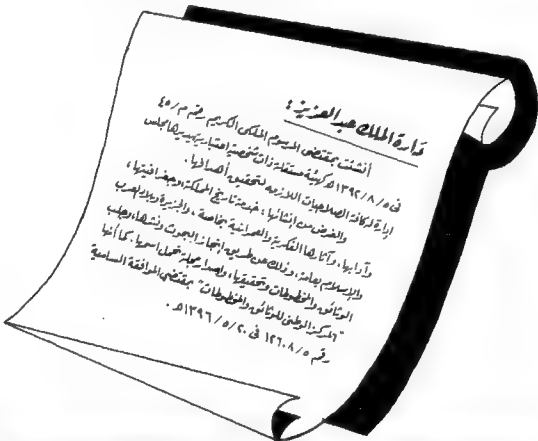 دارة الملك عبد العزيز :
أنشئت بمقتضى المرسوم الملكى الكريم رقم م/٤٥
فى ١٣٩٢/٨/٥هـ كهيئة مستقلة ذات شخصية اعتبارية يديرها مجلس
إدارة له كافة الصلاحيات اللازمة لتحقيق أهدافها .
والغرض من إنشائها ، خدمة تاريخ المملكة وجغرافيتها ،
وآدابها ، وآثارها الفكرية والعمرانية بخاصة ، والجزيرة وبلاد العرب
والإسلام بعامة ، وذلك عن طريق إنجاز البحوث ونشرها ، وجلب
الوثائق والمخطوطات وتحقيقها ، وإصدار مجلة تحمل اسمها ، كما أنها
"المركز الوطنى للوثائق والمخطوطات" بمقتضى الموافقة السامية
رقم ١٢٦٠٨/٥ فى ١٣٩٦/٥/٢٠هـ .